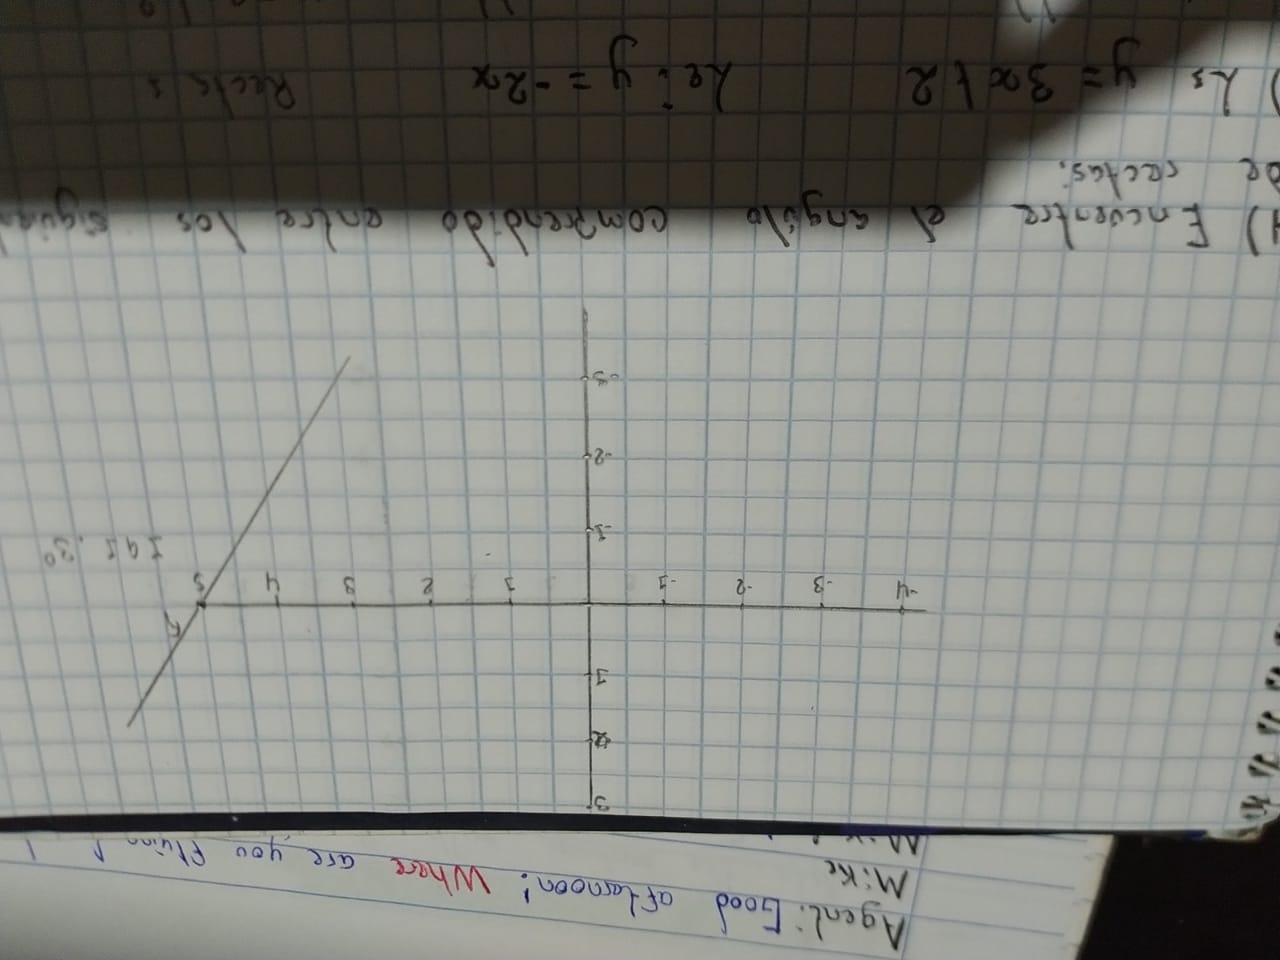 Agent: Good afternoon! Where are you flying
Mike
3
2
1
-4 -3 -2 -1 1 2 3 4 5
-1
-2
-3
Encuentre el angúlo comprendido entre los
de rectas:
y= 3x+2 L2: y = -2x Recta 1